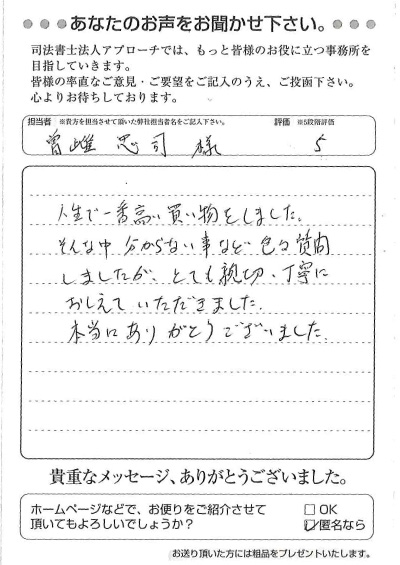 あなたのお声をお聞かせ下さい。
司法書士法人アプローチでは、もっと皆様のお役に立つ事務所を
目指していきます。
皆様の率直なご意見・ご要望をご記入のうえ、ご投函下さい。
心よりお待ちしております。
担当者 ※貴方を担当させて頂いた弊社担当者名をご記入下さい。 評価 ※5段階評価
忠司 様 5
人生で一番高い買い物をしました。
そんな中 分からない事など 色々 質問
しましたが、とても親切、丁寧に
おしえて いただきました。
本当に ありがとうございました。
貴重なメッセージ、ありがとうございました。
ホームページなどで、お便りをご紹介させて
頂いてもよろしいでしょうか？
□ OK
☑ 匿名なら
お送り頂いた方には粗品をプレゼントいたします。